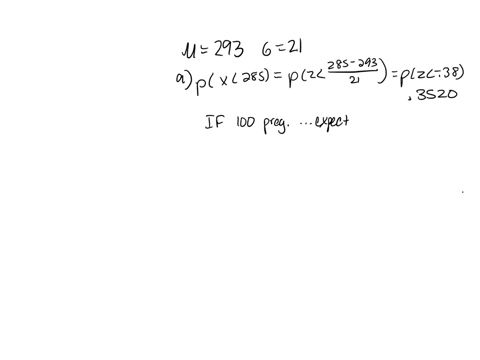 μ = 293 σ = 21
a) P(x < 285) = P(z < 285-293/21) = P(z < -.38)
.3520
IF 100 preg. ...expect